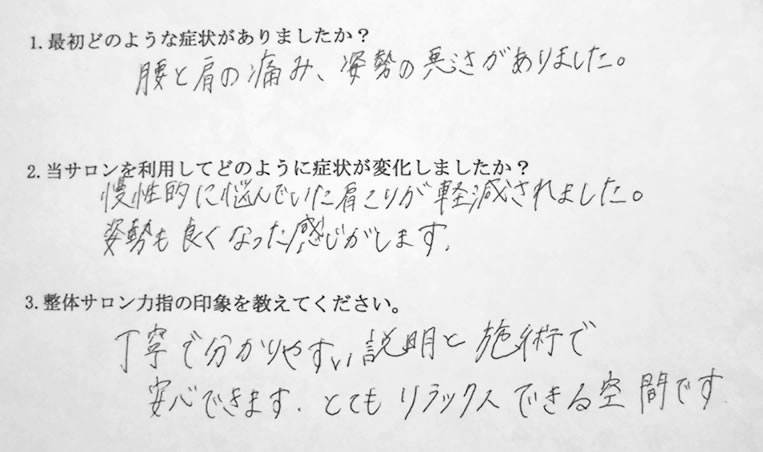 1.最初どのような症状がありましたか？
腰と肩の痛み、姿勢の悪さがありました。
2.当サロンを利用してどのように症状が変化しましたか？
慢性的に悩んでいた肩こりが軽減されました。
姿勢も良くなった感じがします.
3.整体サロン力指の印象を教えてください。
丁寧で分かりやすい説明と施術で
安心できます. とてもリラックスできる空間です